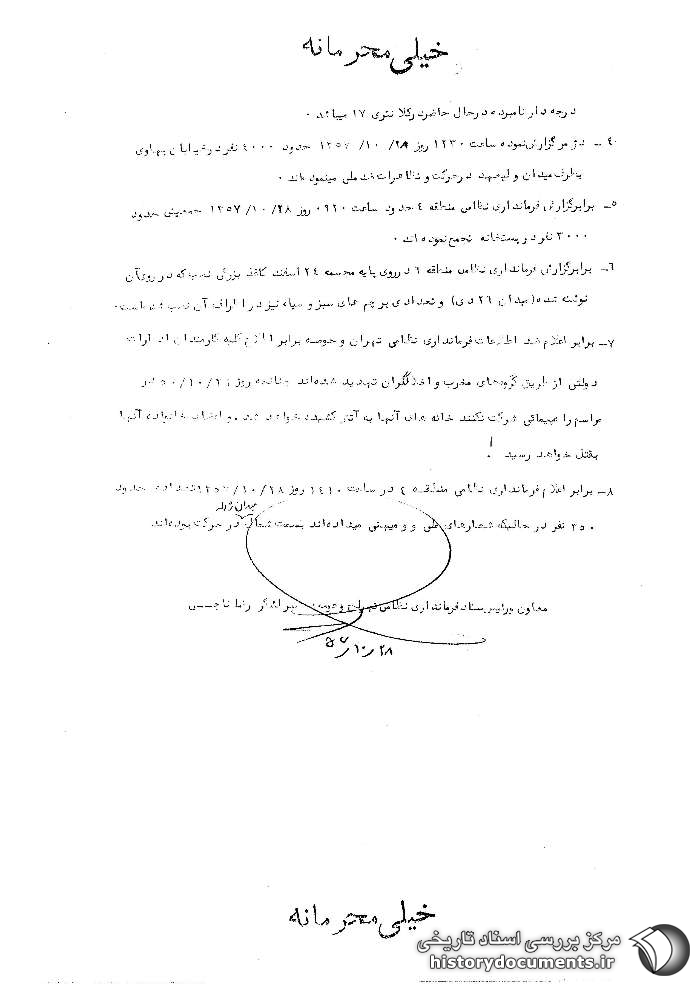 خیلی محرمانه
درجه دار نامبرده در حال حاضر در کلانتری ۱۷ میباشد .
۴ـ نژ مر گزارش نموده ساعت ۱۲۳۰ روز ۲۸/ ۱۰/ ۱۳۵۷ حدود ۴۰۰۰ نفر در خیابان پهلوی
بطرف میدان ولیعهد در حرکت و تظاهرات ضد ملی مینموده اند .
۵ـ برابر گزارش فرمانداری نظامی منطقه ۴ حدود ساعت ۰۹۲۰ روز ۲۸/ ۱۰/ ۱۳۵۷ جمعیتی حدود
۳۰۰۰ نفر در پستخانه تجمع نموده اند .
۶ـ برابر گزارش فرمانداری نظامی منطقه در روی پایه مجسمه ۲۴ اسفند کاغذ بزرگی نصب که در روی آن
نوشته شده (میدان ۲۶ دی) و تعدادی پرچم های سبز و سیاه نیز در اطراف آن نصب شده است .
۷ـ برابر اعلام ضد اطلاعات فرمانداری نظامی تهران و حومه برابر اطلاع کلیه کارمندان ادارات
دولتی از طریق گروههای مخرب و اخلالگران تهدید شده اند چنانچه روز در
مراسم راهپیمائی شرکت نکنند خانه های آنها به آتش کشیده خواهد شد . و اعضاء خانواده آنها
بقتل خواهند رسید !
۸ـ برابر اعلام فرمانداری نظامی منطقه ۴ در ساعت ۱۴۱۰ روز ۲۸/ ۱۰/ ۱۳۵۷ تعدادی حدود
میدان ژاله
۳۵۰ نفر در حالیکه شعارهای ملی و و میهنی میداده اند بسمت شمال در حرکت بوده اند .
معاون و رئیس ستاد فرمانداری نظامی تهران و حومه سرلشگر رضا ناجی
۵۷/۱۰/۲۸
خیلی محرمانه
مرکز بررسی اسناد تاریخی
historydocuments.ir